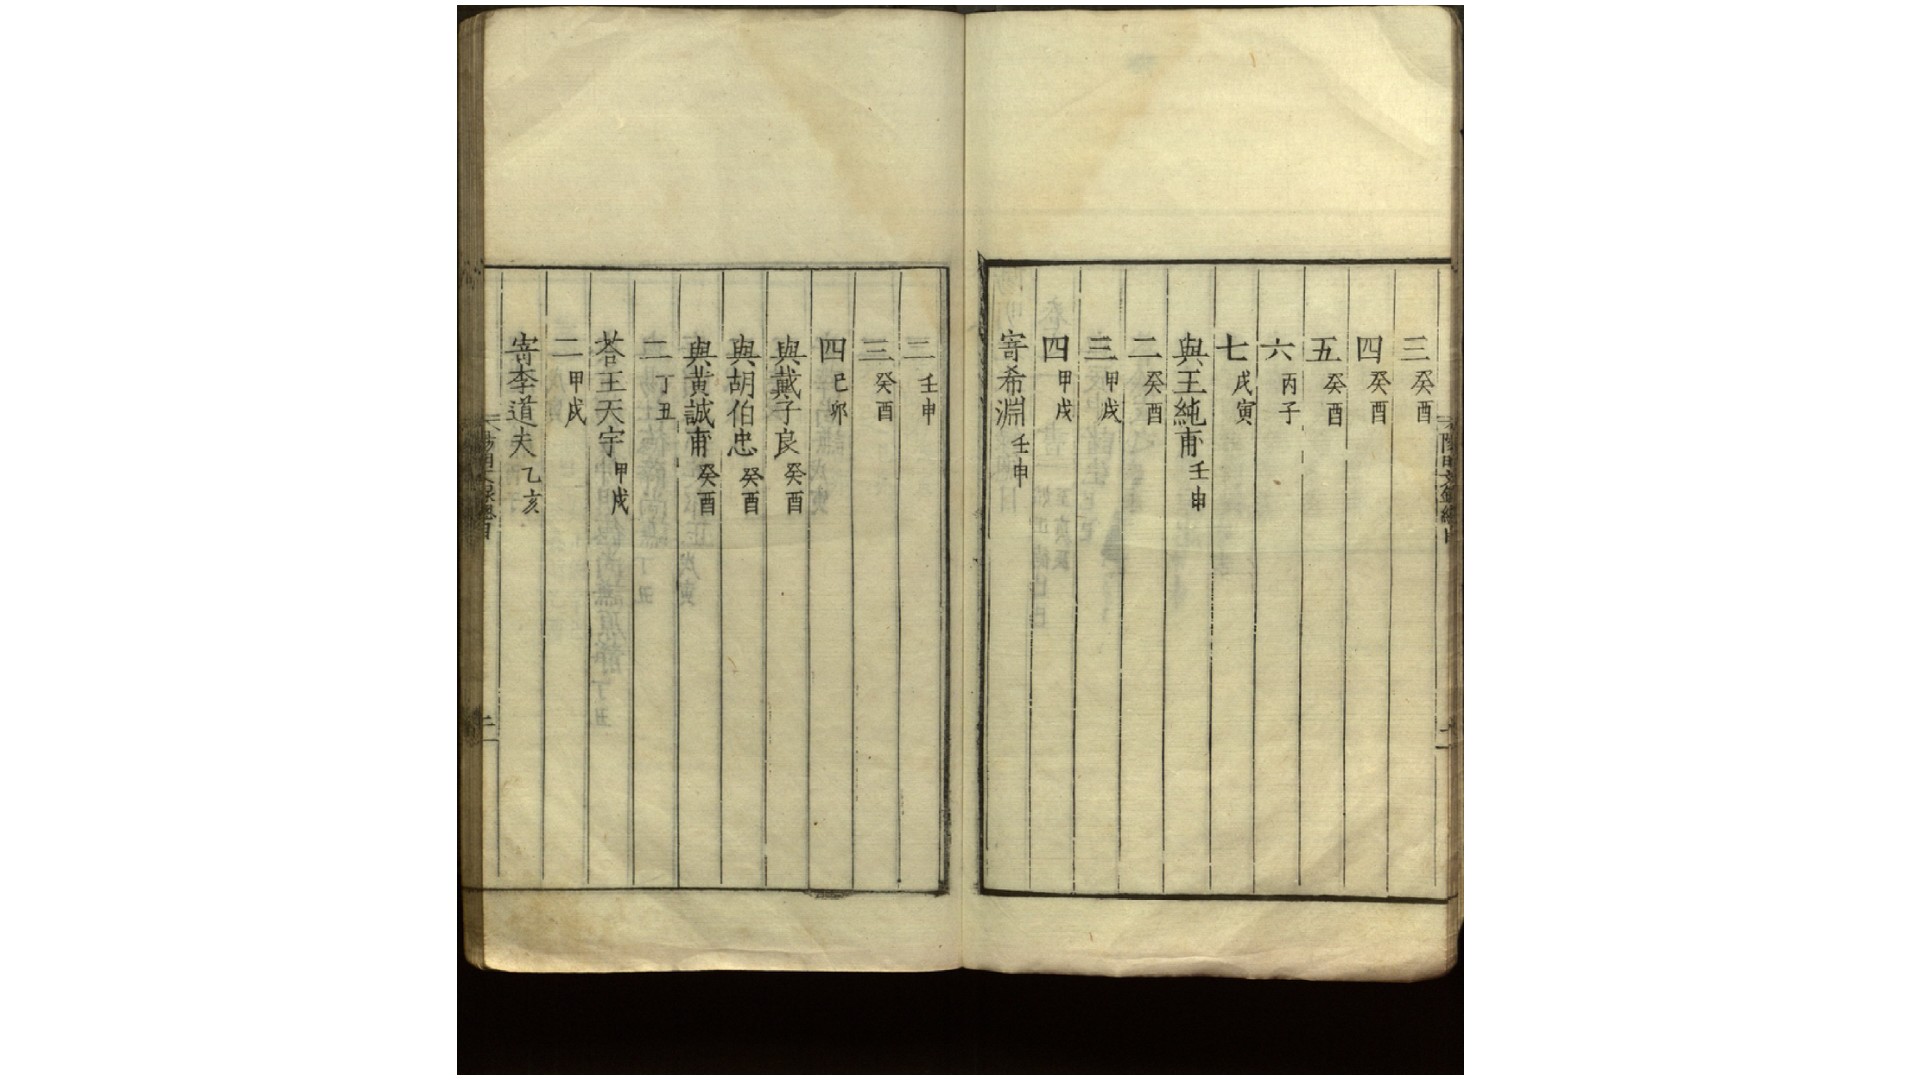 三 癸酉
四 癸酉
五 癸酉
六 丙子
七 戊寅
與王純甫 壬申
二 癸酉
三 甲戌
四 甲戌
寄希淵 壬申
二 壬申
三 癸酉
四 己卯
與戴子良 癸酉
與胡伯忠 癸酉
與黃誠甫 癸酉
二 丁丑
荅王天宇 甲戌
二 甲戌
寄李道夫 乙亥